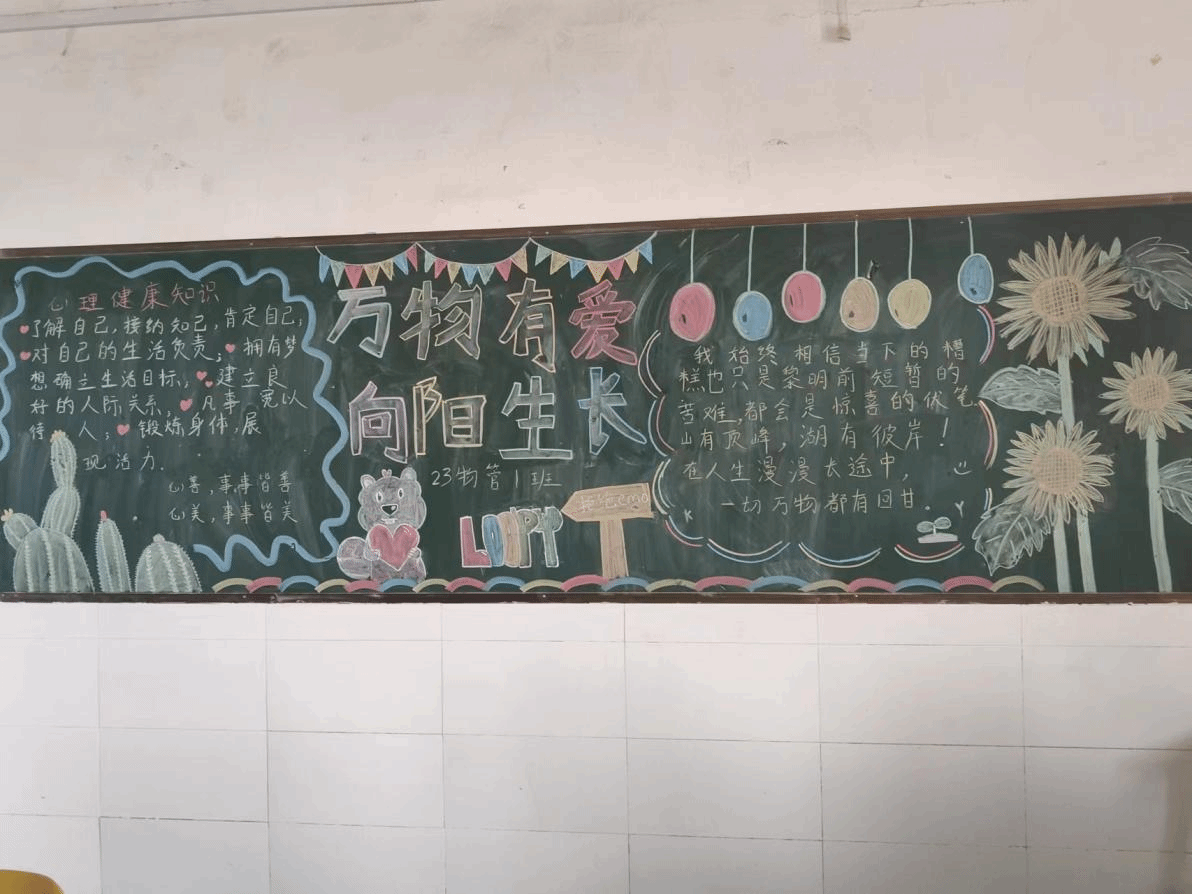 心理健康知识
了解自己,接纳知己,肯定自己;
对自己的生活负责; 拥有梦
想确立生活目标; 建立良
好的人际关系; 凡事 宽以
待 人; 锻炼身体,展
现活力.
心善,事事皆善
心美,事事皆美
万物有爱
向阳生长
23物管1班
LOOPY
拒绝emo
我始终相信当下的糟
糕也只是黎明前短暂的
苦难,都会是惊喜的伏笔
山有顶峰,湖有彼岸!
在人生漫漫长途中,
一切万物都有回甘.